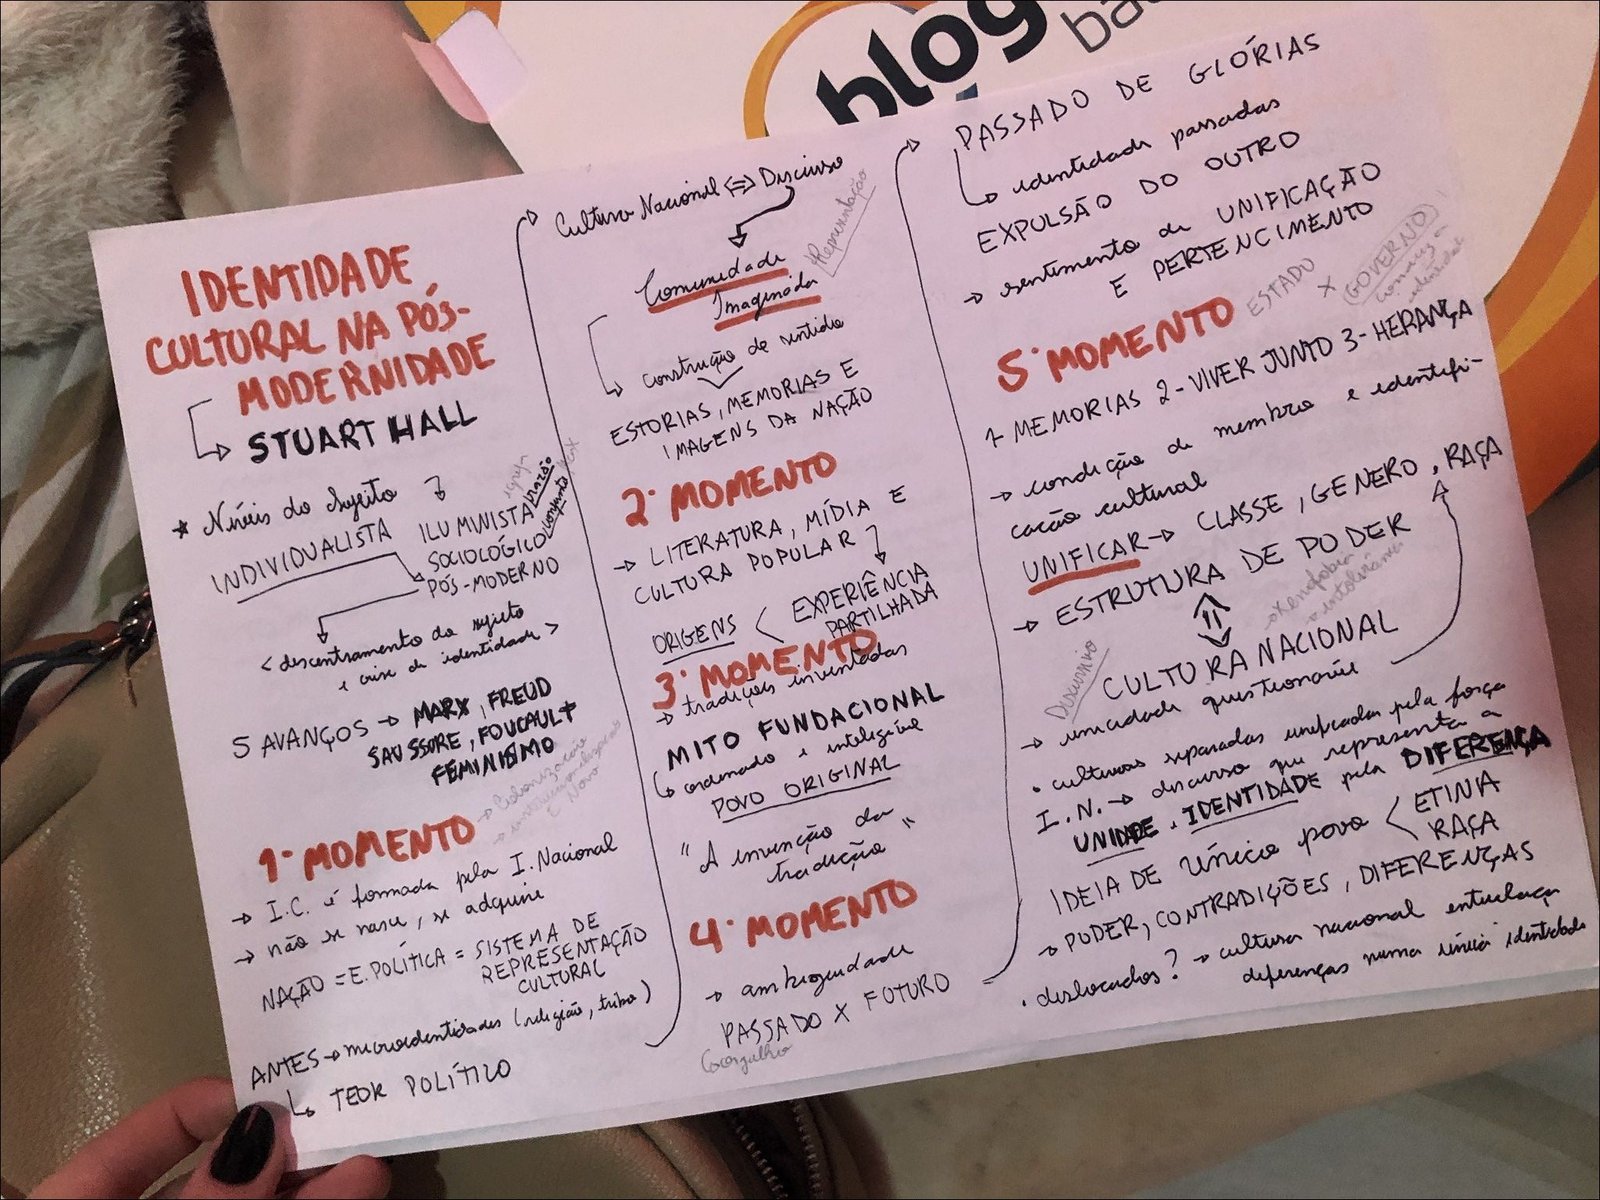 blog
ba
IDENTIDADE
CULTURAL NA PÓS-
MODERNIDADE
STUART HALL
* Níveis do sujeito
INDIVIDUALISTA
ILUMINISTA razão
SOCIOLÓGICO conjunto
PÓS-MODERNO
< descentramento do sujeito
e crise de identidade >
5 AVANÇOS → MARX, FREUD
SAUSSURE, FOUCAULT
FEMINISMO
1º MOMENTO
→ I.C. é formada pela I. Nacional
→ não se nasce, se adquire
NAÇÃO = E. POLÍTICA = SISTEMA DE
REPRESENTAÇÃO
CULTURAL
ANTES → microidentidades (religião, tribo)
↳ TEOR POLÍTICO
Cultura Nacional <=> Discurso
Representação
Comunidade
Imaginada
construção de sentido
ESTORIAS, MEMORIAS E
IMAGENS DA NAÇÃO
2º MOMENTO
→ LITERATURA, MÍDIA E
CULTURA POPULAR
ORIGENS < EXPERIÊNCIA
PARTILHADA
3º MOMENTO
→ tradições inventadas
MITO FUNDACIONAL
↳ ordenado e inteligível
POVO ORIGINAL
" A invenção da
tradição "
4º MOMENTO
→ ambiguidade
PASSADO X FUTURO
PASSADO DE GLÓRIAS
↳ identidade passadas
EXPULSÃO DO OUTRO
→ sentimento de UNIFICAÇÃO
E PERTENCIMENTO
5º MOMENTO ESTADO X GOVERNO
1- MEMORIAS 2- VIVER JUNTO 3- HERANÇA
→ condição de membro e identifi-
cação cultural
UNIFICAR → CLASSE, GENERO, RAÇA
→ ESTRUTURA DE PODER
→ xenofobia
→ intolerância
Discursivo
CULTURA NACIONAL
→ unicidade questionável
• culturas separadas unificadas pela força
I.N. → discurso que representa a
UNIDADE, IDENTIDADE pela DIFERENÇA
IDEIA DE único povo < ETINIA
RAÇA
→ PODER, CONTRADIÇÕES, DIFERENÇAS
• deslocados? → cultura nacional entrelaça
diferenças numa única identidade